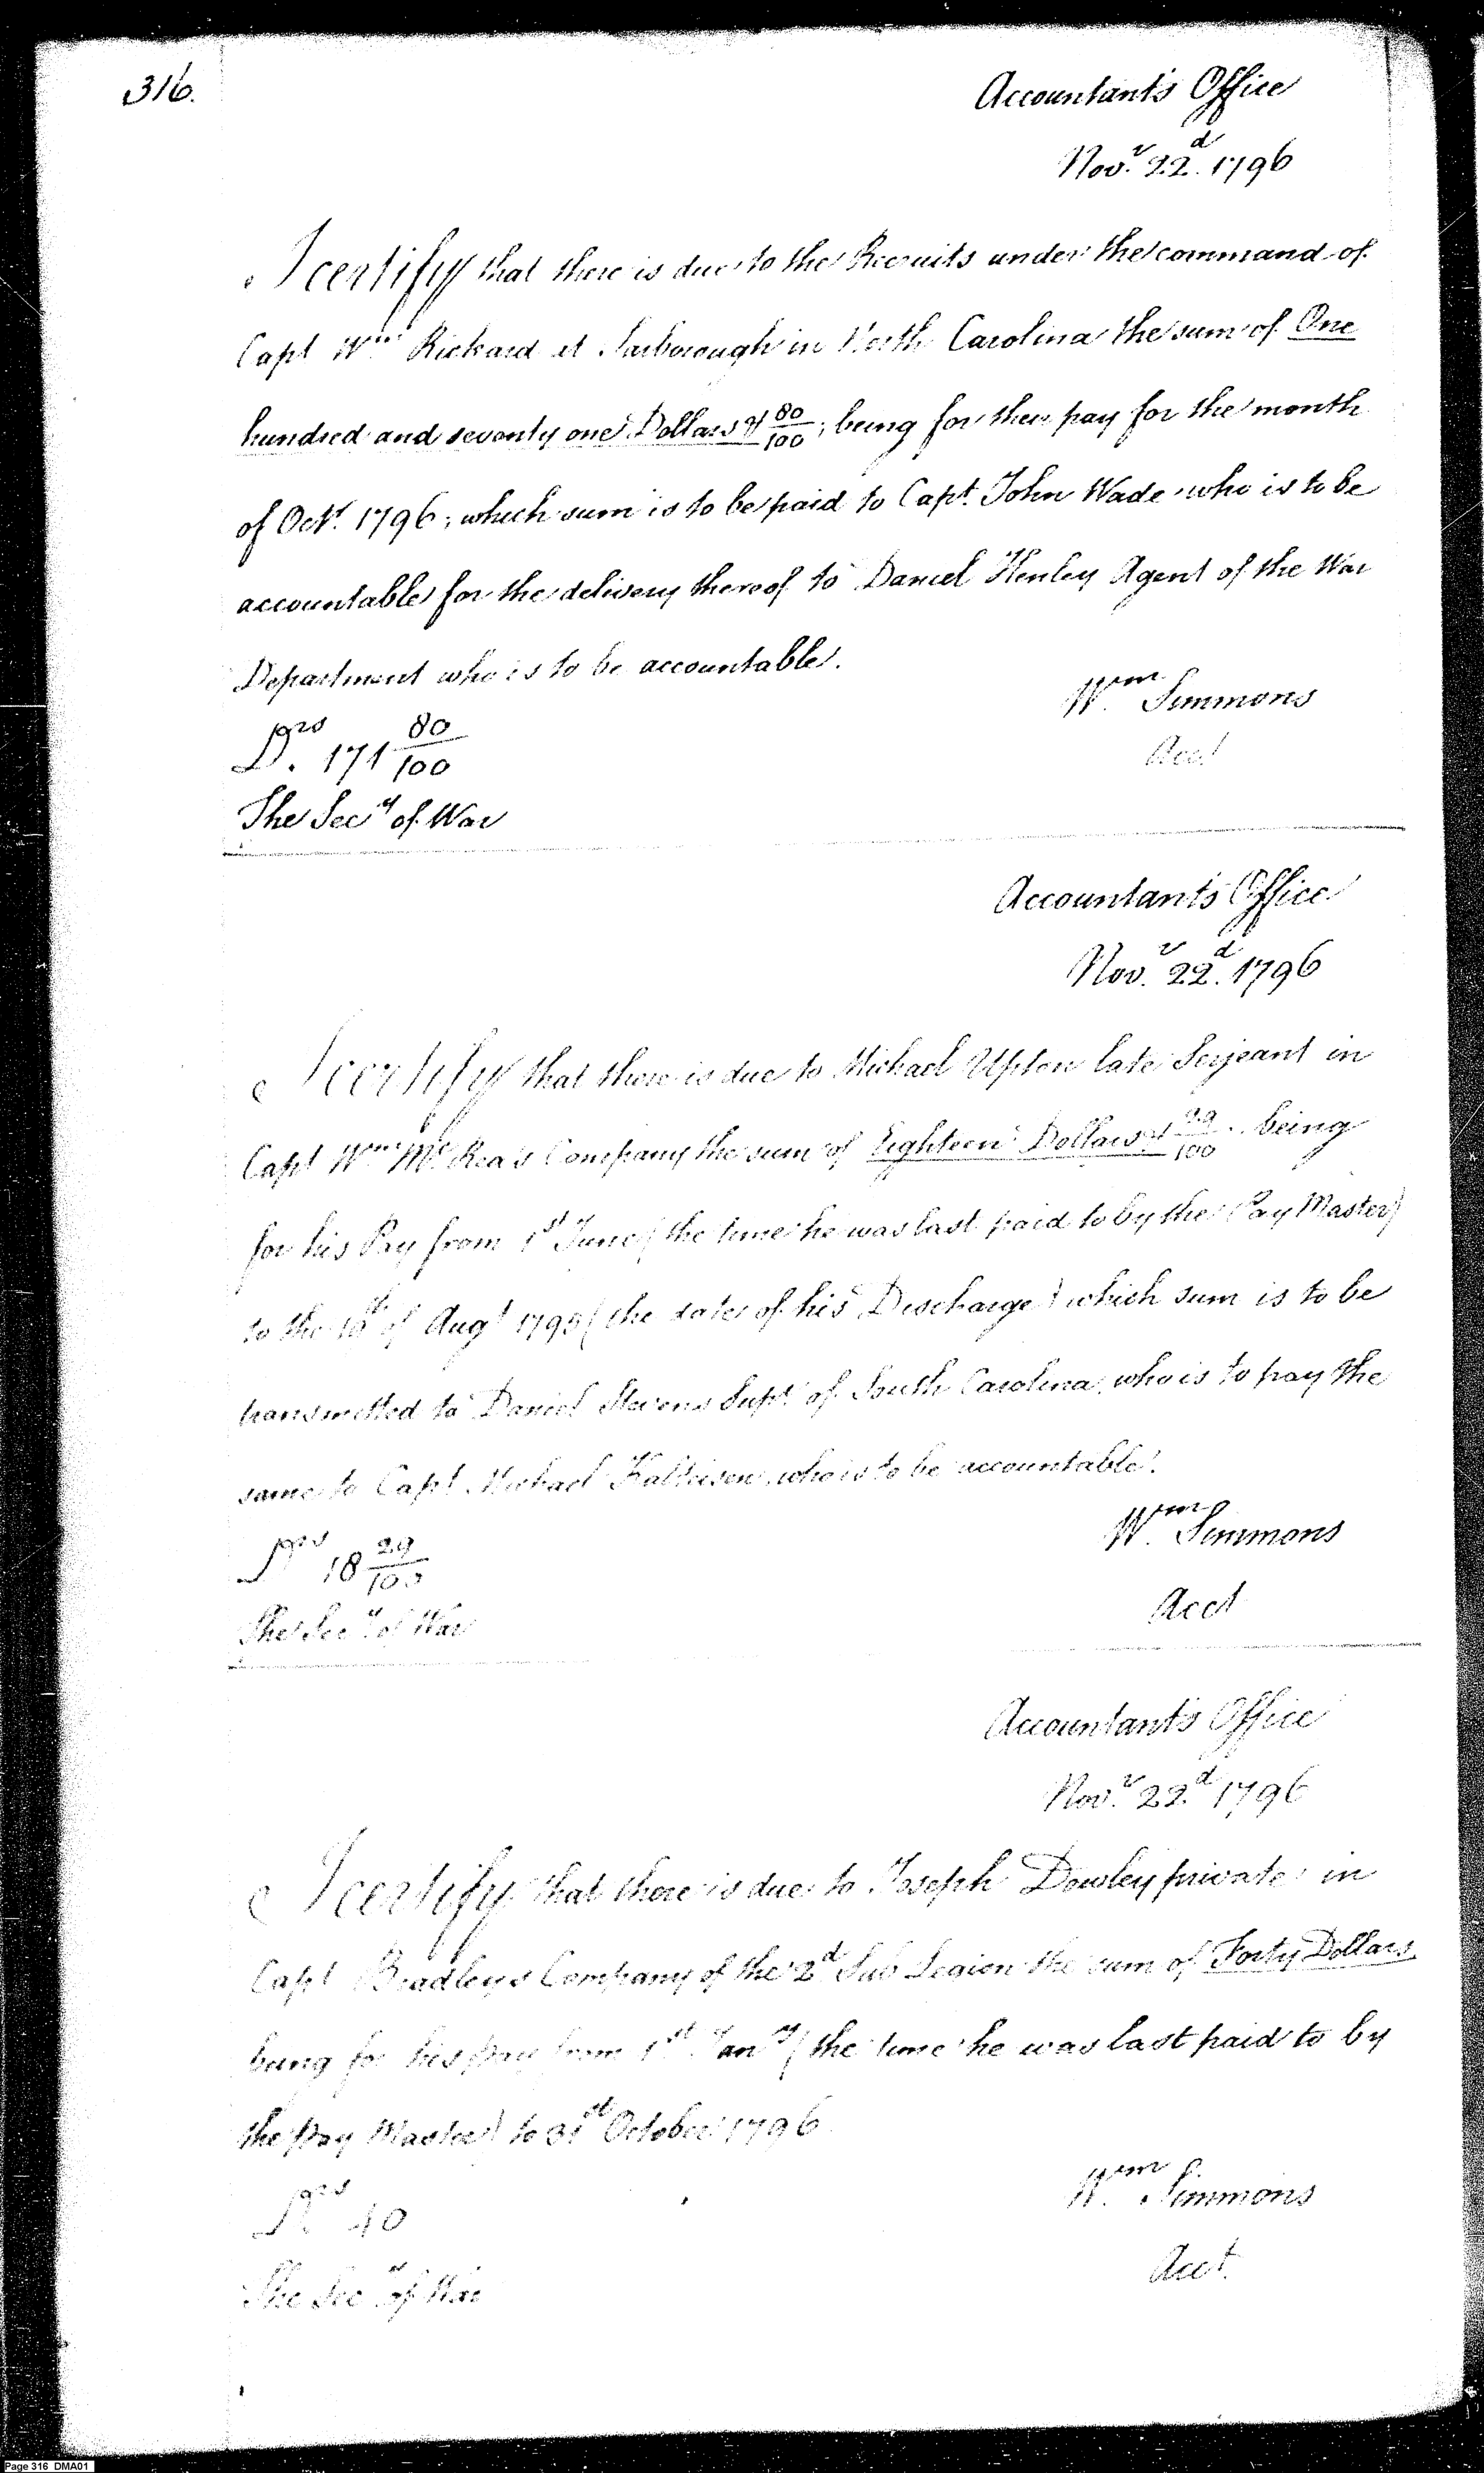 316.
Accountant's Office
Novr. 22d. 1796
I certify that there is due to the Recruits under the command of
Capt Wm Rickard at Tarborough in North Carolina the sum of One
hundred and seventy one Dollars & 80/100; being for their pay for the month
of Oct. 1796; which sum is to be paid to Capt. John Wade who is to be
accountable for the delivery thereof to Daniel Henley Agent of the War
Department who is to be accountable.
Wm. Simmons
Acct
Drs. 171 80/100
The Secy of War
Accountant's Office
Novr. 22d. 1796
I certify that there is due to Michael Upton late Serjeant in
Capt Wm McRea's Company the sum of Eighteen Dollars & 29/100 being
for his Pay from 1st June (the time he was last paid to by the Pay Master)
to the of Augt (the date of his Discharge) which sum is to be
transmitted to Daniel Stevens Supt. of South Carolina, who is to pay the
same to Capt. Michael Kalteisen, who is to be accountable.
Wm. Simmons
Acct
Drs 18 29/100
The Secy of War
Accountant's Office
Novr. 22d 1796
I certify that there is due to Joseph Dowley private in
Capt Bradley's Company of the 2d Sub Legion the sum of Forty Dollars
being for his pay from 1st Jany (the time he was last paid to by
the Pay Master) to 31st October 1796
Wm. Simmons
Acct.
Drs. 40
The Secy of War
Page 316 DMA01